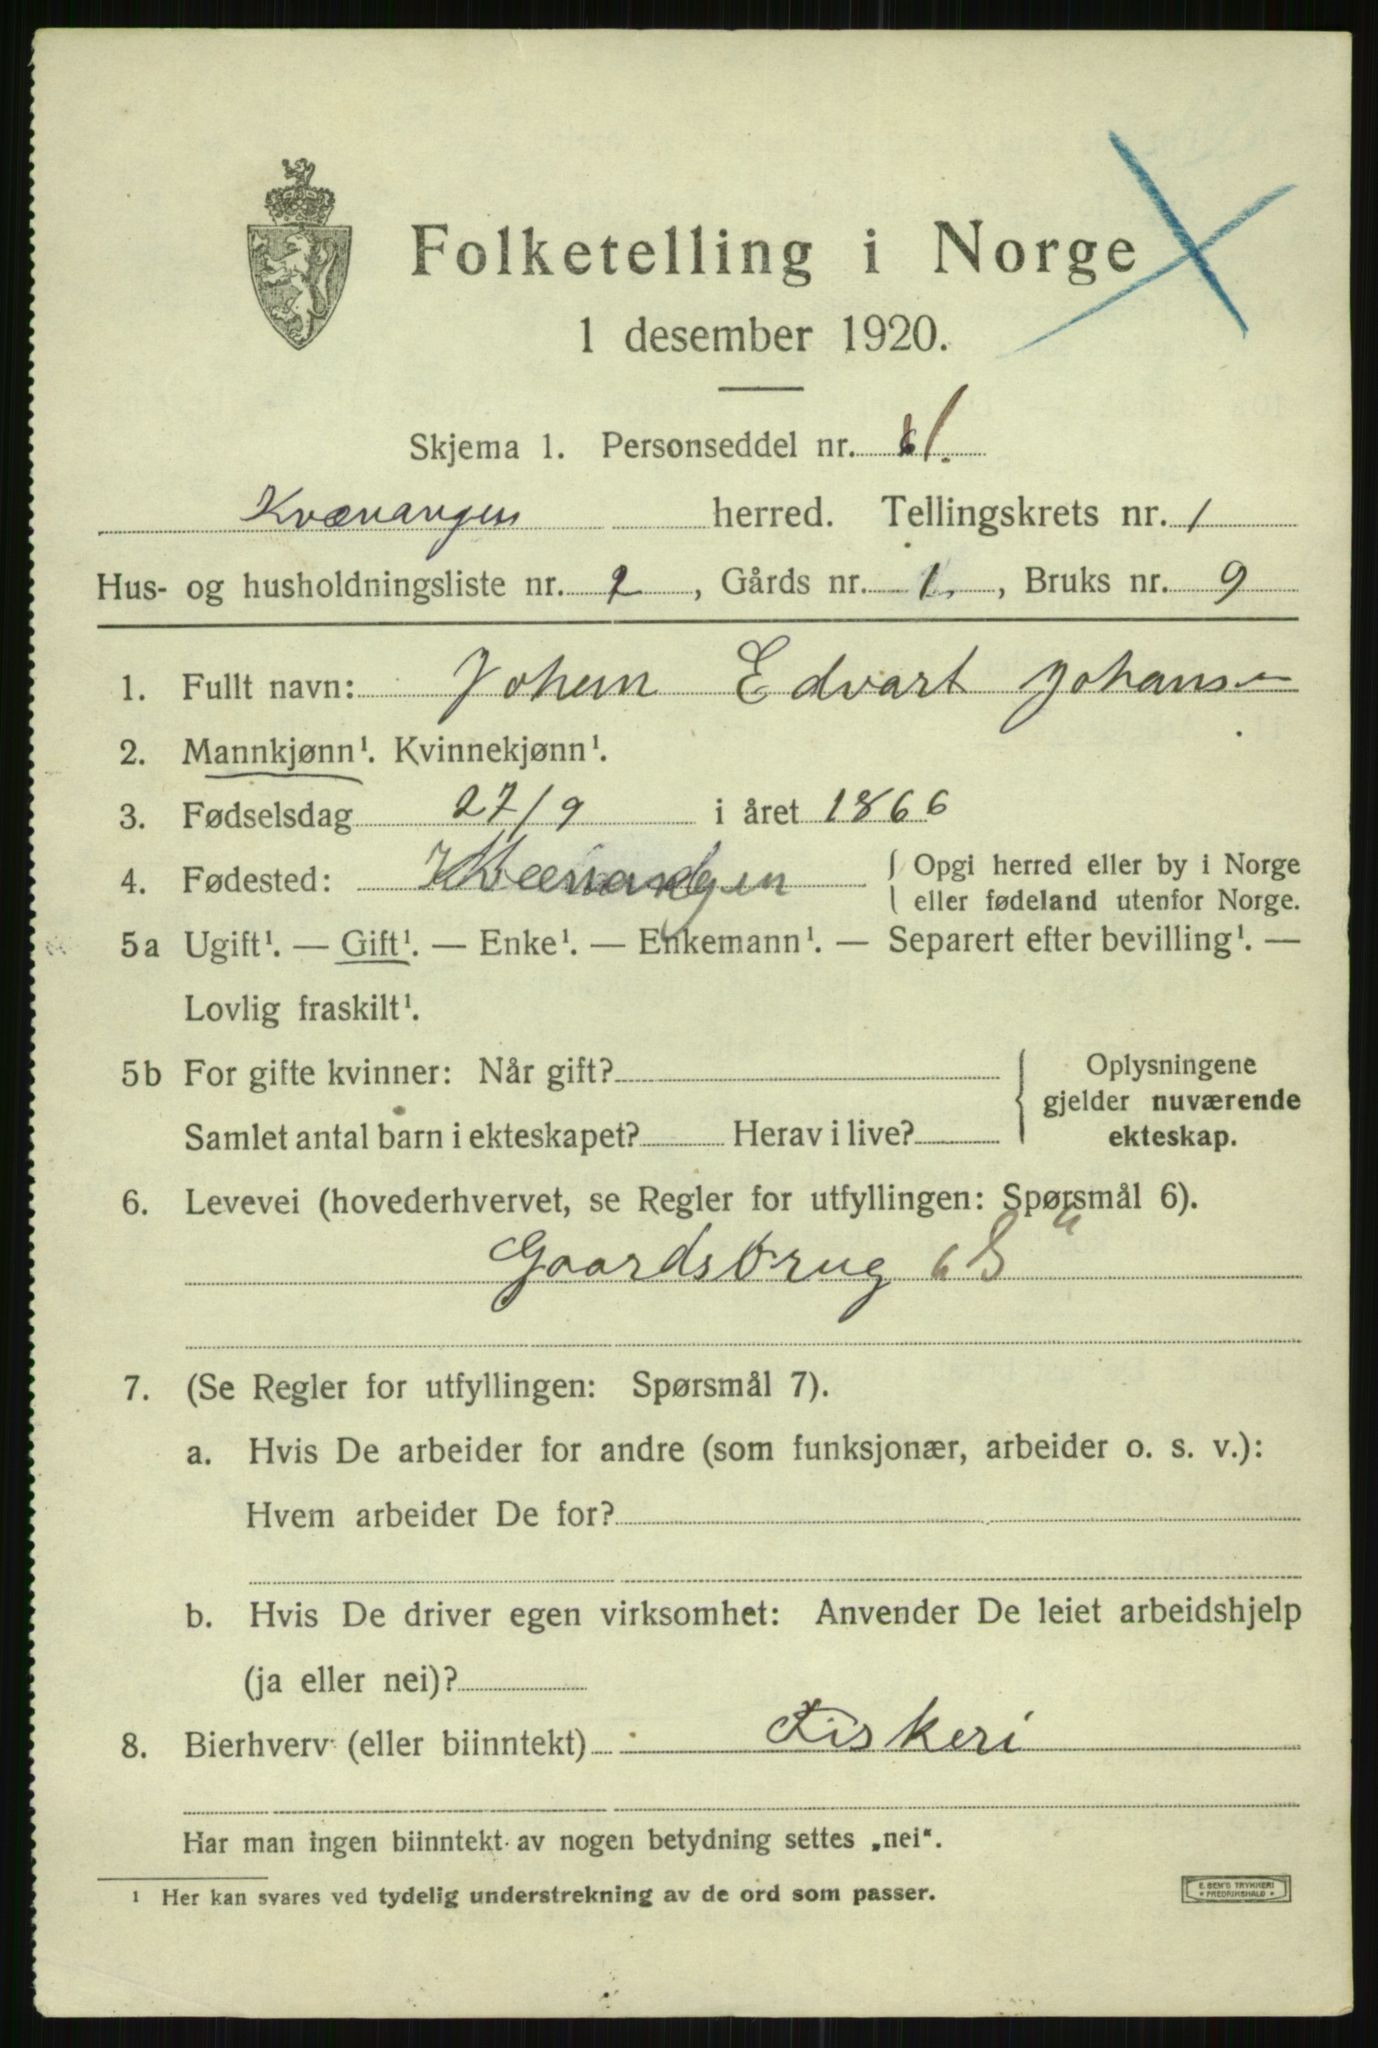 Folketelling i Norge
1 desember 1920.
Skjema 1. Personseddel nr. 1.
Kvænangen herred. Tellingskrets nr. 1
Hus- og husholdningsliste nr. 2, Gårds nr. 1., Bruks nr. 9
1. Fullt navn: Johan Edvart Johansen
2. Mannkjønn¹. Kvinnekjønn¹.
3. Fødselsdag 27/9 i året 1866
4. Fødested: Kvænangen { Opgi herred eller by i Norge
eller fødeland utenfor Norge.
5a Ugift¹. — Gift¹. — Enke¹. — Enkemann¹. — Separert efter bevilling¹. —
Lovlig fraskilt¹.
5b For gifte kvinner: Når gift?
Samlet antal barn i ekteskapet? Herav i live?
Oplysningene
gjelder nuværende
ekteskap.
6. Levevei (hovederhvervet, se Regler for utfyllingen: Spørsmål 6).
Gaardsbrug
7. (Se Regler for utfyllingen: Spørsmål 7).
a. Hvis De arbeider for andre (som funksjonær, arbeider o. s. v.):
Hvem arbeider De for?
b. Hvis De driver egen virksomhet: Anvender De leiet arbeidshjelp
(ja eller nei)?
8. Bierhverv (eller biinntekt) Fiskeri
Har man ingen biinntekt av nogen betydning settes „nei“.
¹ Her kan svares ved tydelig understrekning av de ord som passer.
E. SEM'S TRYKKERI
FREDRIKSHALD